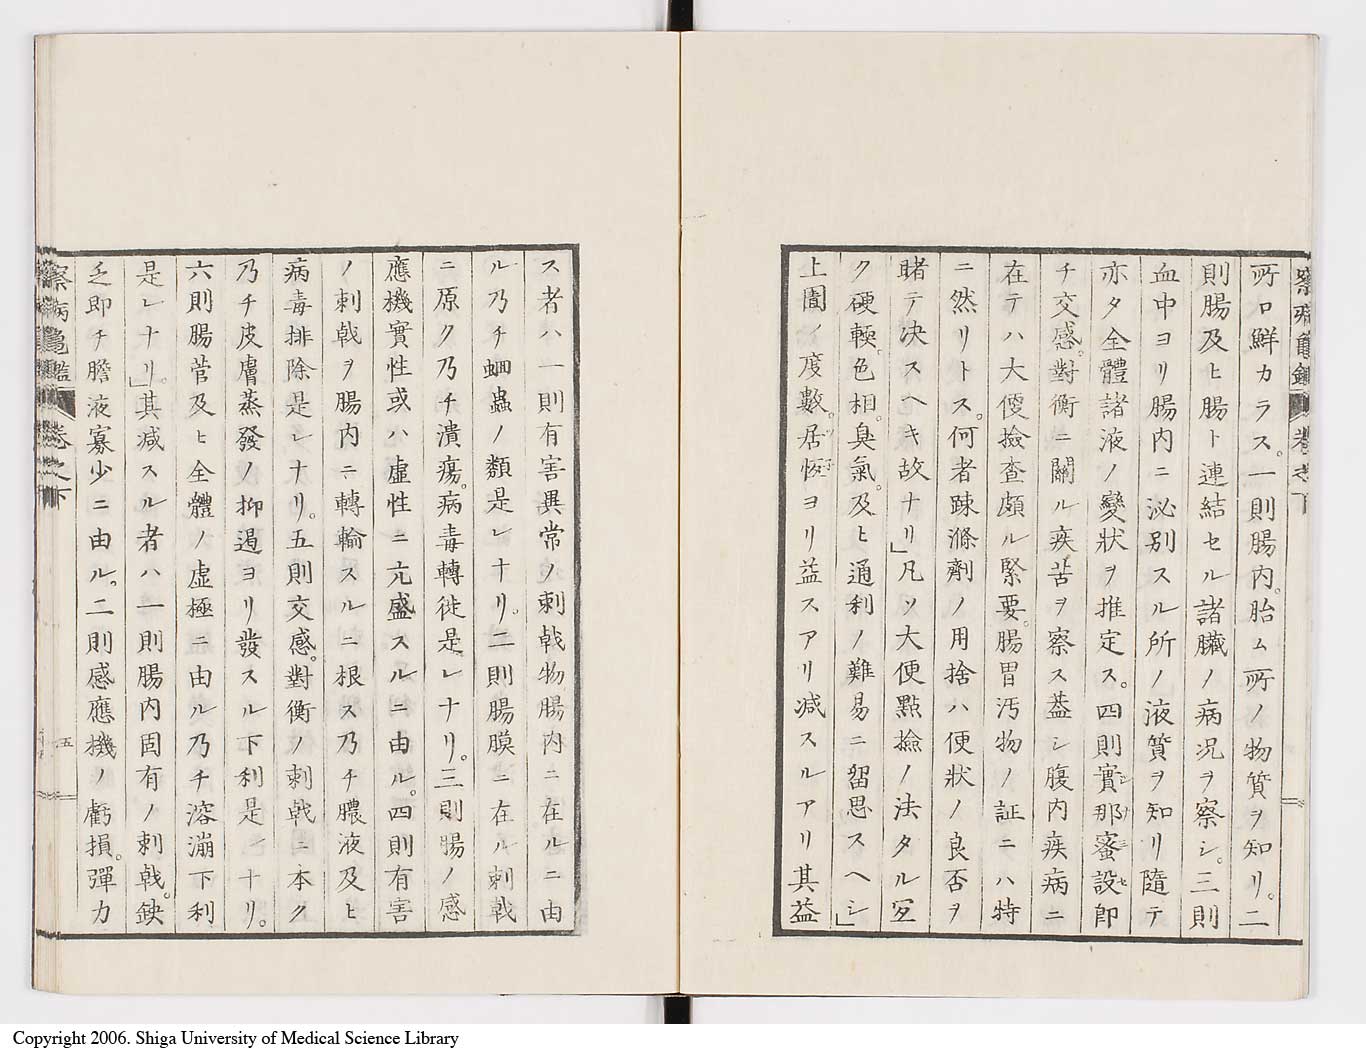 所ロ鮮カラス。一則腸内。胎ム所ノ物質ヲ知リ。二
則腸及ヒ腸ト連結セル諸臓ノ病况ヲ察シ。三則
血中ヨリ腸内ニ泌別スル所ノ液質ヲ知リ隨テ
亦タ全體諸液ノ變狀ヲ推定ス。四則實那蜜設即
チ交感。對衡ニ關ル疾苦ヲ察ス葢シ腹内疾病ニ
在テハ大便撿查頗ル緊要。腸胃汚物ノ証ニハ特
ニ然リトス。何者疎滌劑ノ用捨ハ便狀ノ良否ヲ
睹テ决スヘキ故ナリ」凡ソ大便點撿ノ法タル宜
ク硬輭。色相。臭氣。及ヒ通利ノ難易ニ留思スヘシ」
上圊ノ度數。居恆ヨリ益スアリ减スルアリ其益
ス者ハ一則有害異常ノ刺戟物腸内ニ在ルニ由
ル乃チ蛔蟲ノ類是レナリ。二則腸膜ニ在ル刺戟
ニ原ク乃チ潰瘍。病毒轉徙是レナリ。三則腸ノ感
應機實性或ハ虚性ニ亢盛スルニ由ル。四則有害
ノ刺戟ヲ腸内ニ轉輸スルニ根ス乃チ膿液及ヒ
病毒排除是レナリ。五則交感。對衡ノ刺戟ニ本ク
乃チ皮膚蒸發ノ抑遏ヨリ發スル下利是レナリ。
六則腸管及ヒ全體ノ虚極ニ由ル乃チ溶崩下利
是レナリ。」其减スル者ハ一則腸内固有ノ刺戟。缺
乏即チ膽液寡少ニ由ル。二則感應機ノ虧損。彈力
察病龜鑑 巻之下
五
Copyright 2006. Shiga University of Medical Science Library